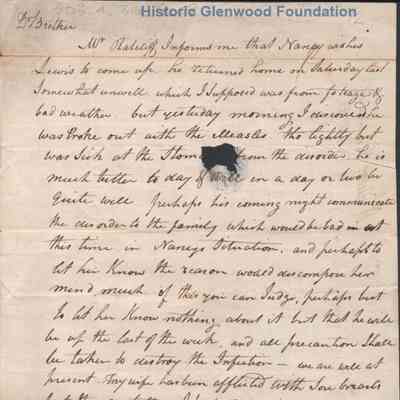 Historic Glenwood Foundation
Dr Brother
Mr Ratcliff Informs me that Nancy wishes
Lewis to come up he returned home on Saturday last
Somewhat unwell which I supposed was from fatague &
bad weather but yesterday morning I discovered he
was Broke out with the Measles tho lightly but
was Sick at the Stom from the disorder he is
much better to day & will in a day or two be
quite well perhaps his coming might communicate
the disorder to the family which would be bad in
this time in Nancys Situation, and perhaps to
let her Know the reason would discompose her
mind much of this you can Judge, perhaps best
to let her Know nothing about it but that he will
be up the last of the week, and all precaution Shall
be taken to destroy the Infection — we are well at
present my wife has been afflicted with Sore breasts